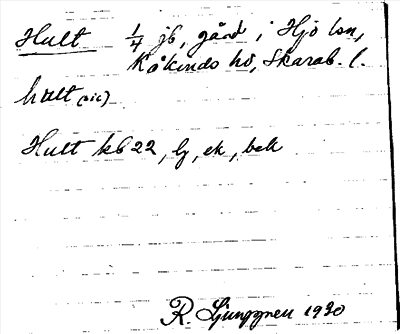 Hult 1/4 jb, gård i Hjo lsn,
Kåkinds hd, Skarab. l.
hult (sic)
Hult kb 22, lj, ek, bek
R. Ljunggren 1930